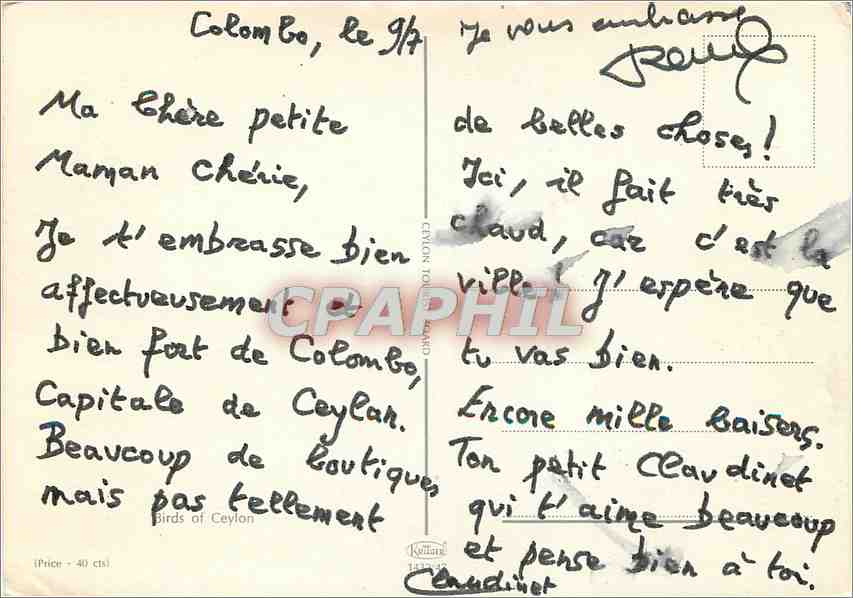 Colombo, le 9/7
Ma Chère petite
Maman Chérie,
Je t'embrasse bien
affectueusement et
bien fort de Colombo,
Capitale de Ceylan.
Beaucoup de boutiques
mais pas tellement
Birds of Ceylon
(Price - 40 cts)
CEYLON TOURIST BOARD
KRÜGER
Je vous embrasse
de belles choses!
Ici, il fait très
chaud, car c'est la
ville! J'espère que
tu vas bien.
Encore mille baisers.
Ton petit Claudinet
qui t'aime beaucoup
et pense bien à toi.
Claudinet
CPAPHIL